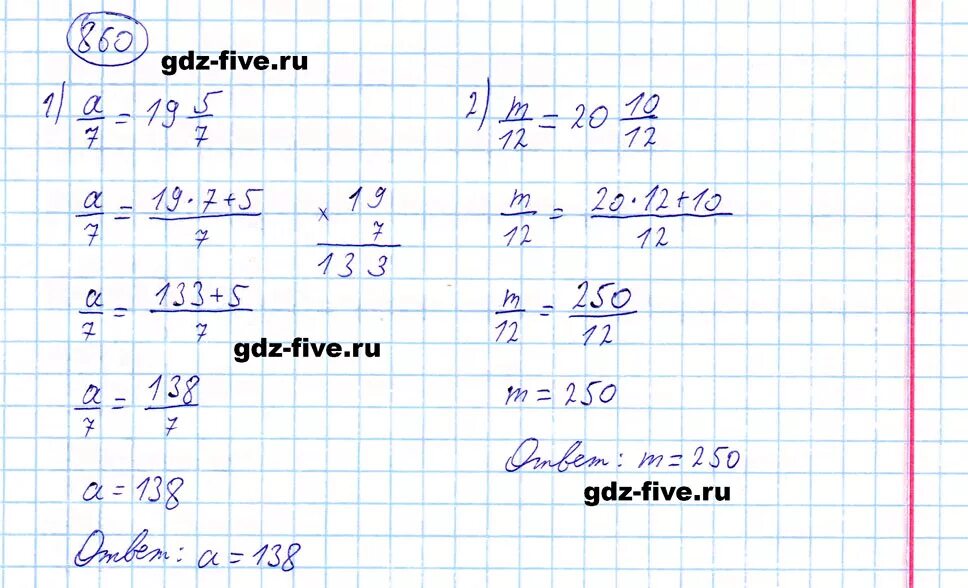 860
gdz-five.ru
1) a/7 = 19 5/7
a/7 = (19·7+5)/7
× 19
7
133
a/7 = (133+5)/7
gdz-five.ru
a/7 = 138/7
a = 138
Ответ: a = 138
2) m/12 = 20 10/12
m/12 = (20·12+10)/12
m/12 = 250/12
m = 250
Ответ: m = 250
gdz-five.ru